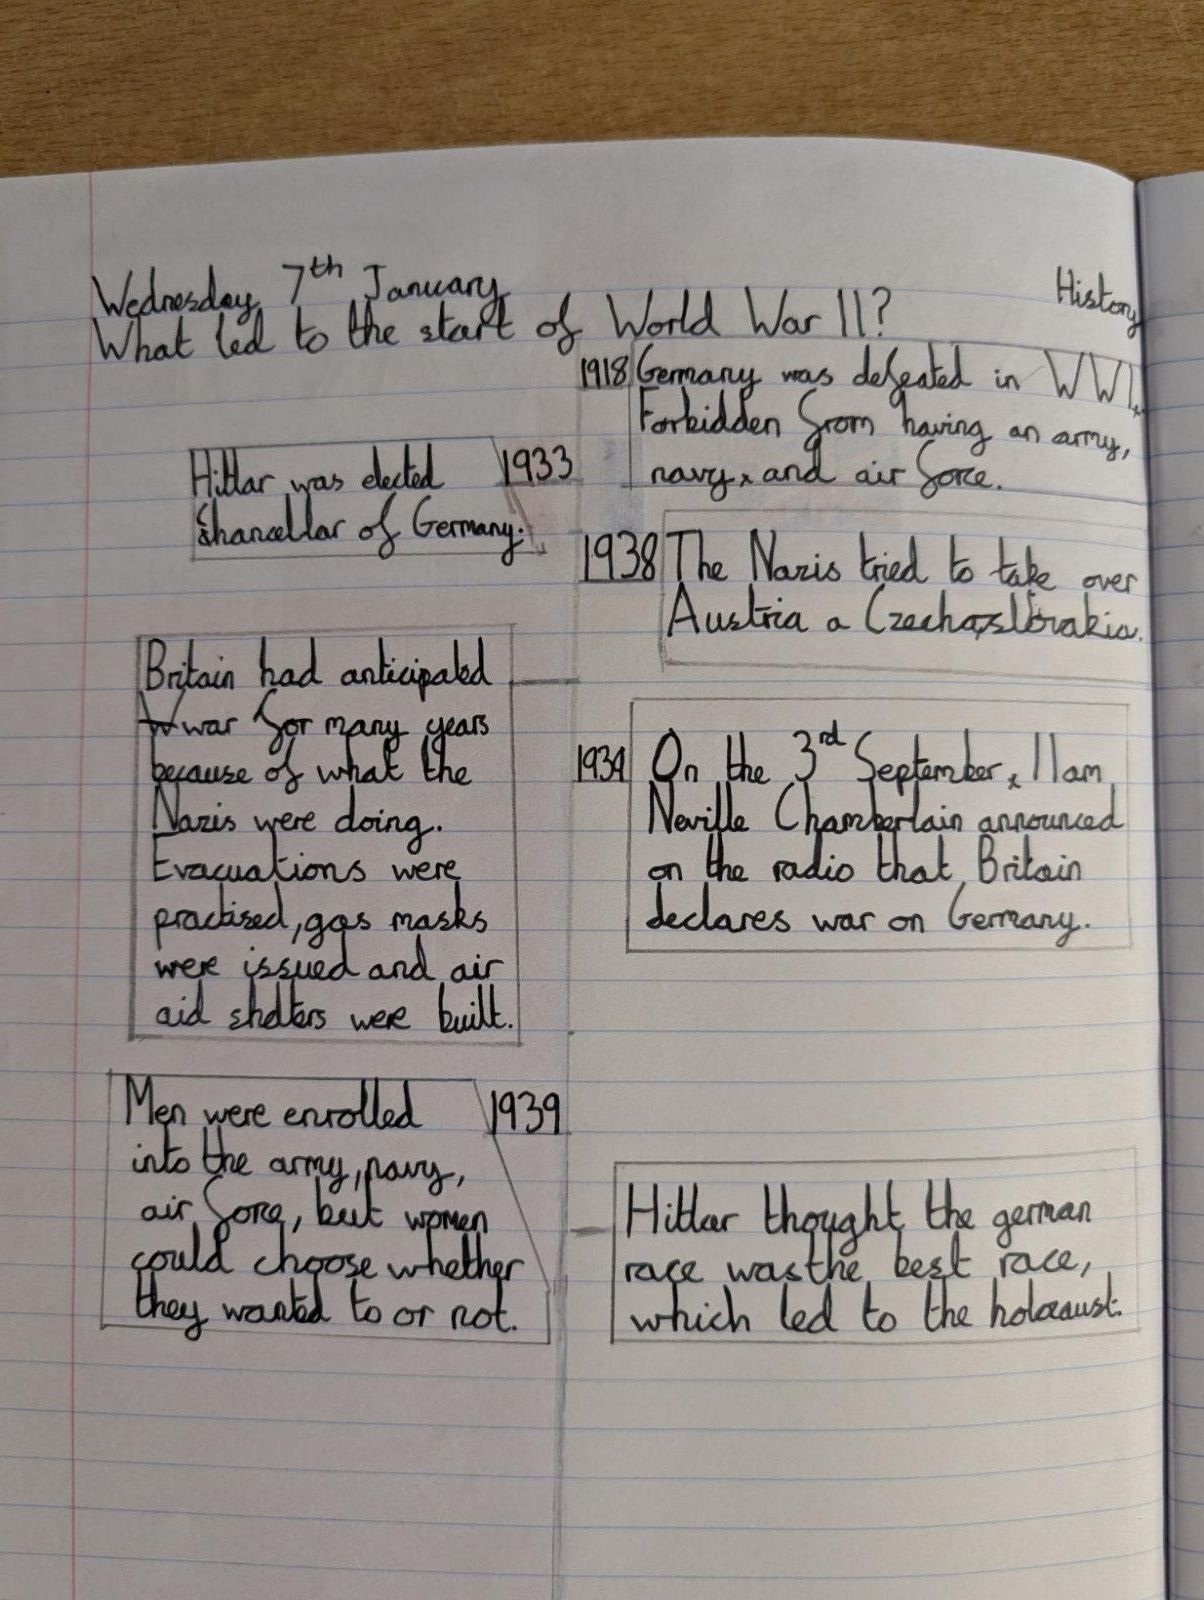 Wednesday 7th January
History
What led to the start of World War II?
1918 Germany was defeated in WWI.
Forbidden from having an army,
navy, and air force.
Hitlar was elected 1933
Chancellar of Germany.
1938 The Nazis tried to take over
Austria a Czechaslovakia.
Britain had anticipated
war for many years
because of what the
Nazis were doing.
Evacuations were
practised, gas masks
were issued and air
aid shelters were built.
1939 On the 3rd September, 11am
Neville Chamberlain announced
on the radio that Britain
declares war on Germany.
Men were enrolled 1939
into the army, navy,
air force, but women
could choose whether
they wanted to or not.
Hitlar thought the german
race was the best race,
which led to the holocaust.